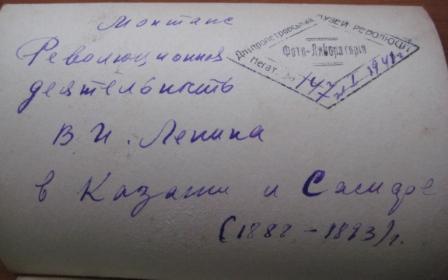 Монтаж
Революционная
деятельность
В. И. Ленина
в Казани и Самаре
(1887 - 1893) г.
Дніпропетровський МУЗЕЙ РЕВОЛЮЦІЇ
Фото-Лабораторія
Негат. № 147